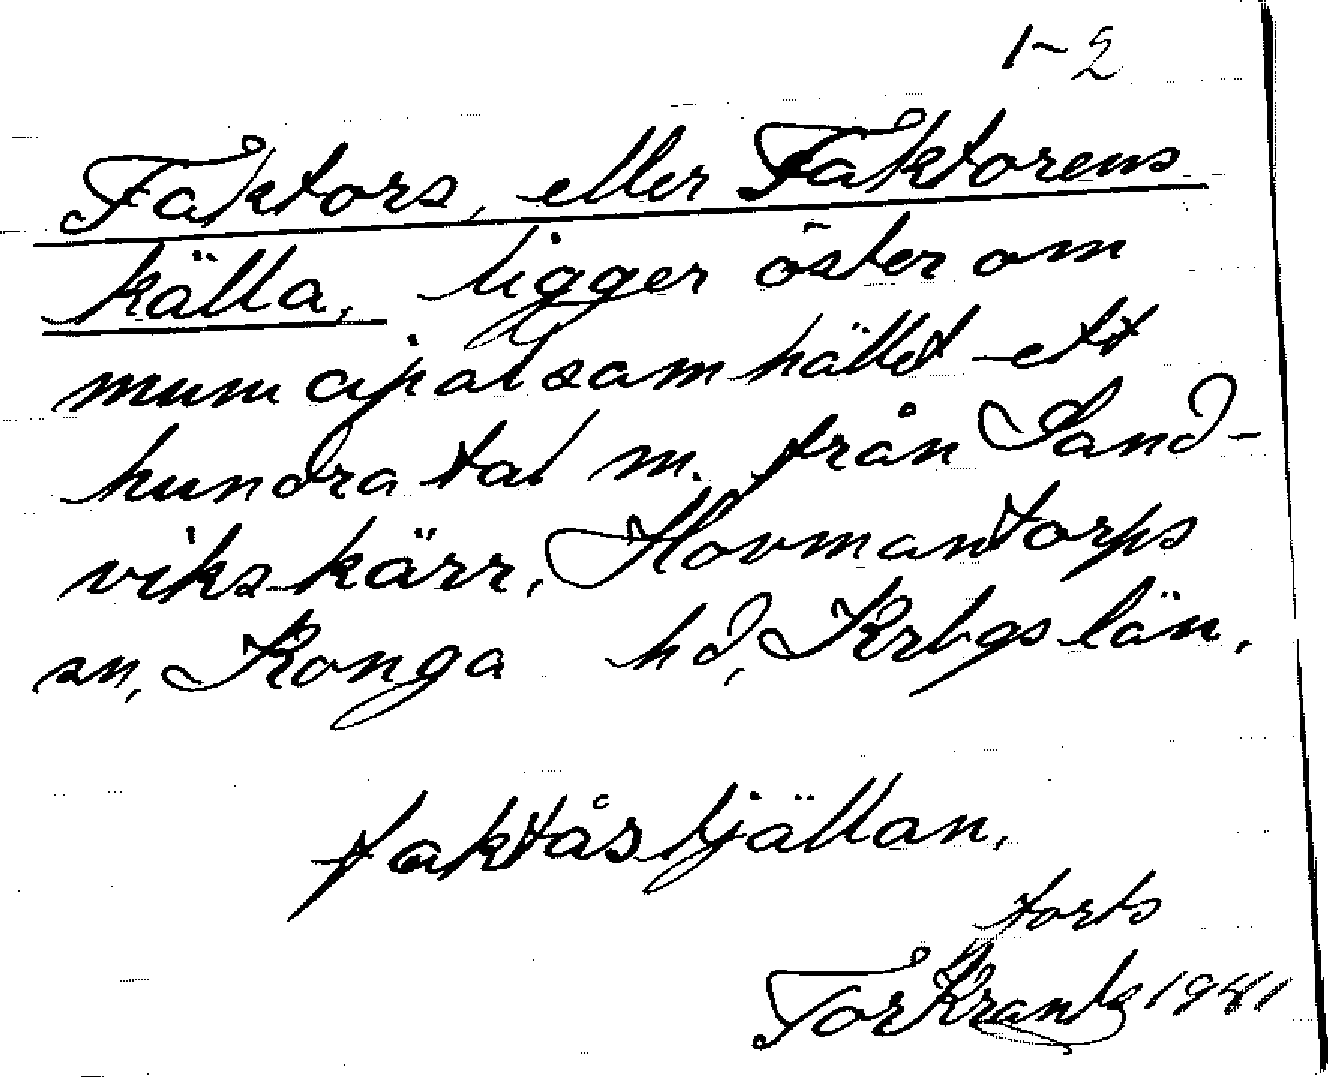 1-2
Faktors, eller Faktorens
källa, ligger öster om
municipalsamhället ett
hundratal m. från Sand-
vikskärr, Hovmantorps
sn, Konga hd, Krbgs län.
faktås tjällan,
forts
Tor Krantz 1941